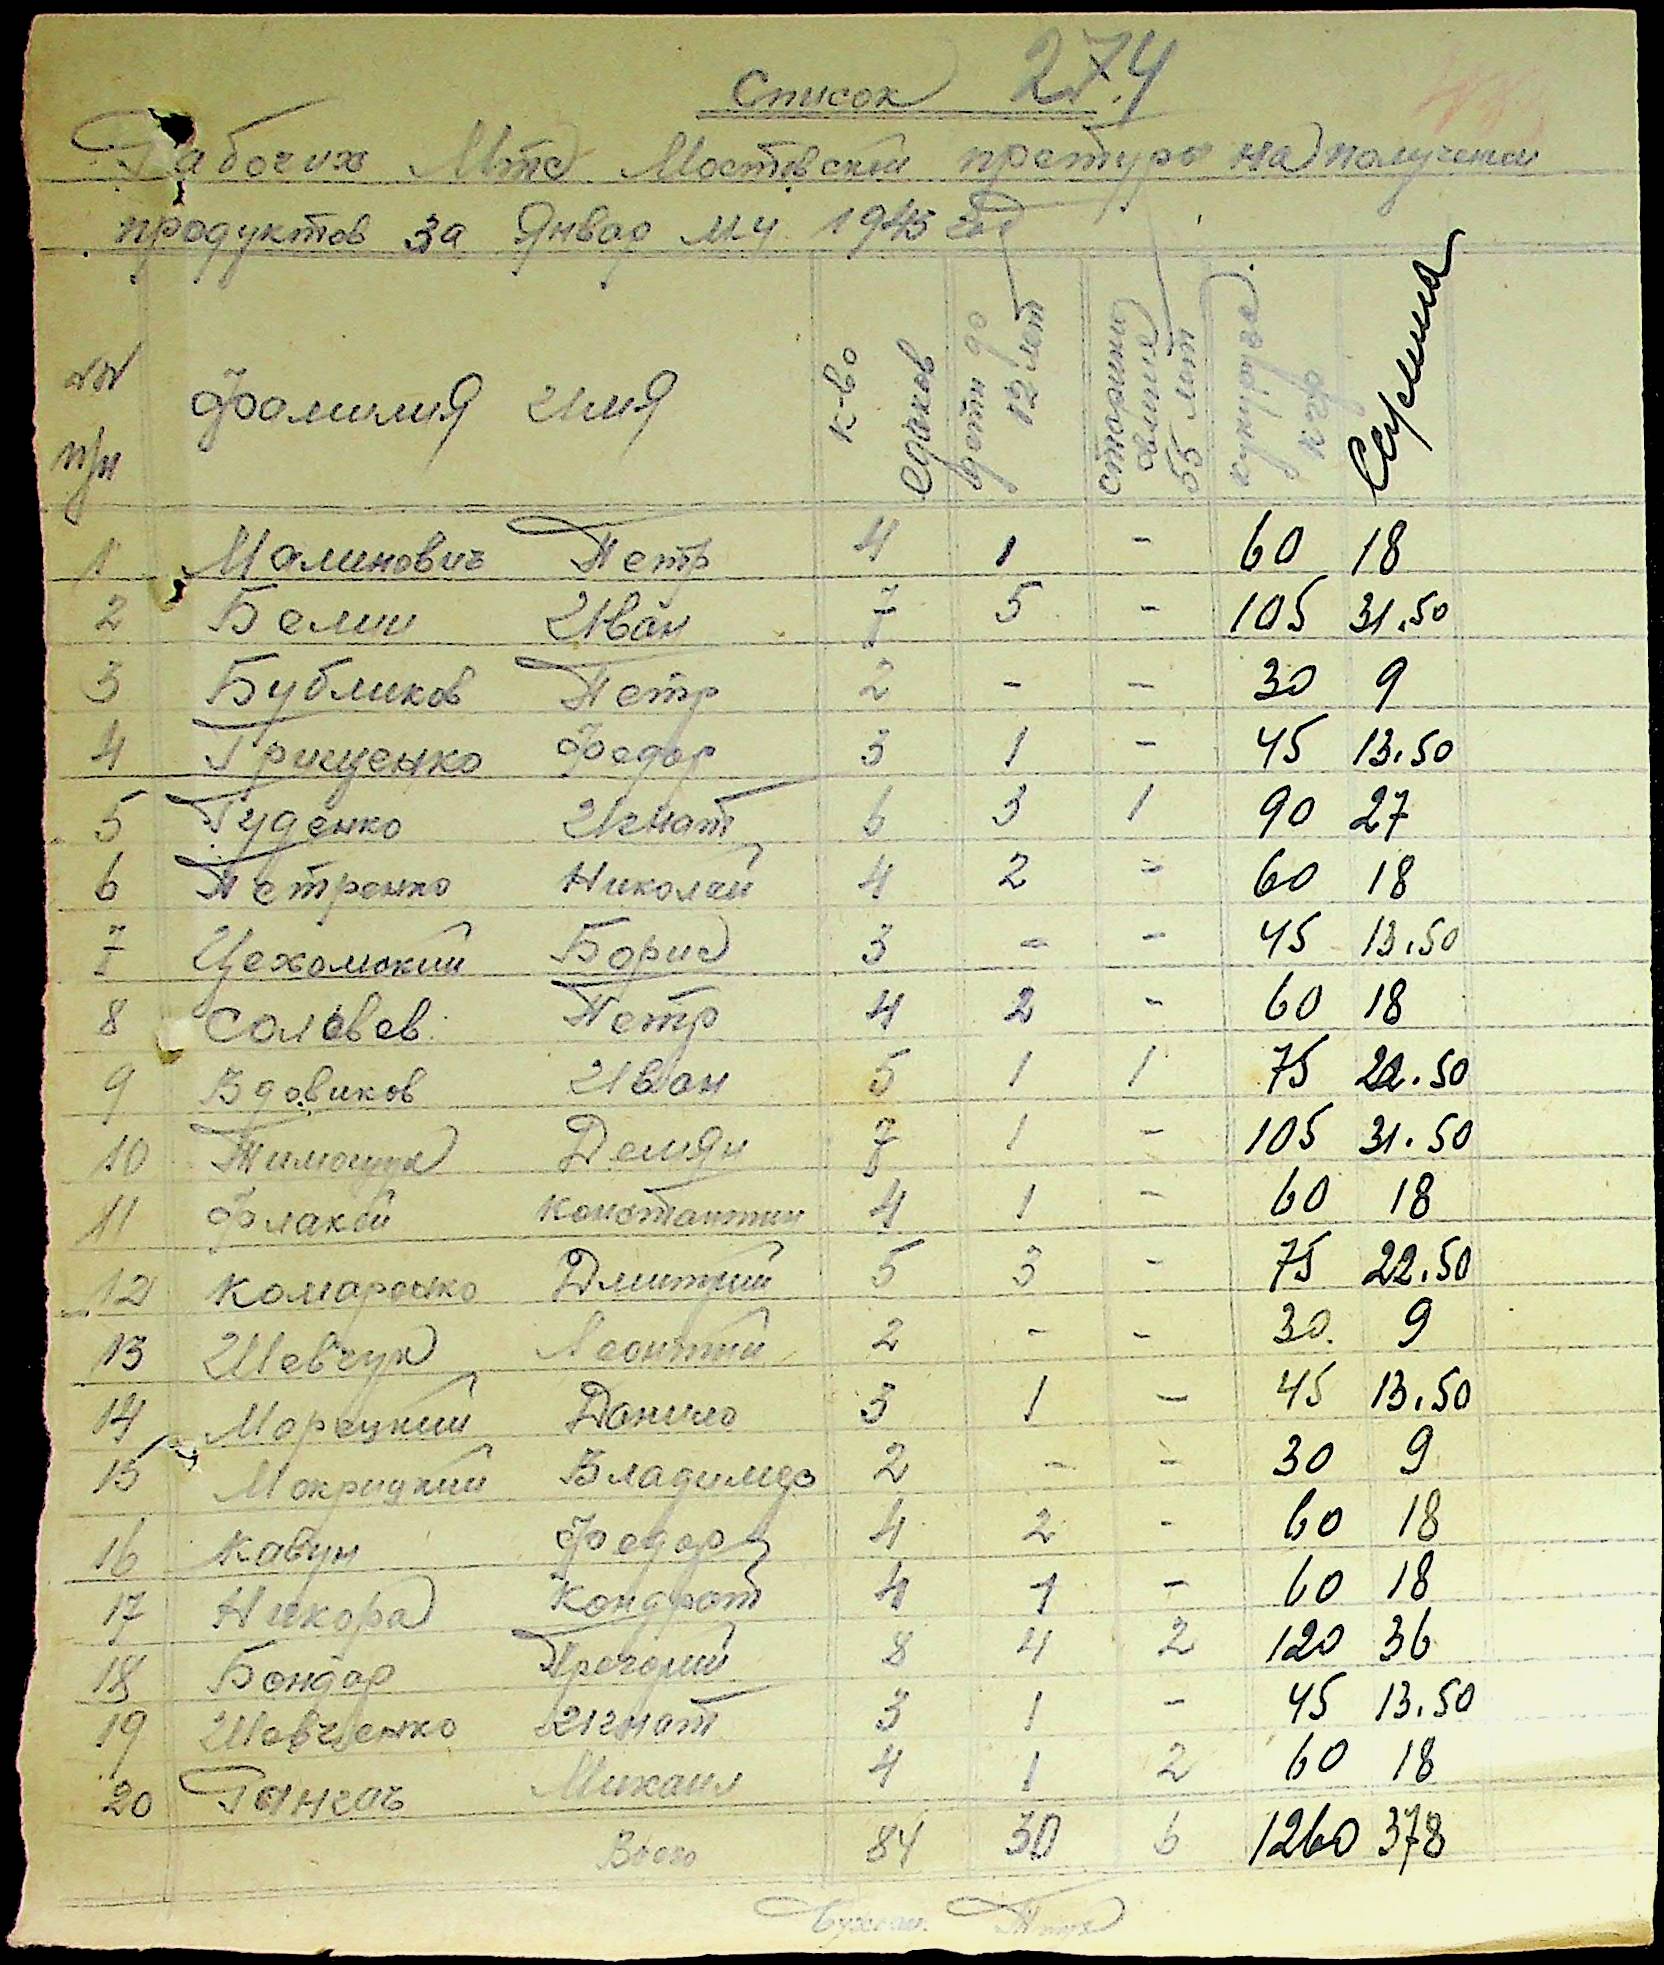 Список 274
Рабочих Мтс Мостовской претуры на получении
продуктов за Январ м-ц 1945 год
№№ п/п Фамилия Имя к-во едоков дети до 12 лет старики свыше 55 лет кукуруза кгр Сумма
1 Малинович Петр 4 1 - 60 18
2 Белин Иван 7 5 - 105 31.50
3 Бубликов Петр 2 - - 30 9
4 Грищенко Федор 3 1 - 45 13.50
5 Гуденко Игнат 6 3 1 90 27
6 Петренко Николай 4 2 - 60 18
7 Цехомский Борис 3 - - 45 13.50
8 Солевев Петр 4 2 - 60 18
9 Вдовиков Иван 5 1 1 75 22.50
10 Тимощук Демян 7 1 - 105 31.50
11 Флакей Константин 4 1 - 60 18
12 Комаренко Дмитрий 5 3 - 75 22.50
13 Шевчук Леонтий 2 - - 30 9
14 Морецкий Данило 3 1 - 45 13.50
15 Мокрицкий Владимер 2 - - 30 9
16 Кавун Федор 4 2 - 60 18
17 Никора Кондрат 4 1 - 60 18
18 Бондар Григорий 8 4 2 120 36
19 Шевченко Игнат 3 1 - 45 13.50
20 Ганчаъ Михаил 4 1 2 60 18
Всего 84 30 6 1260 378
Бухгал.